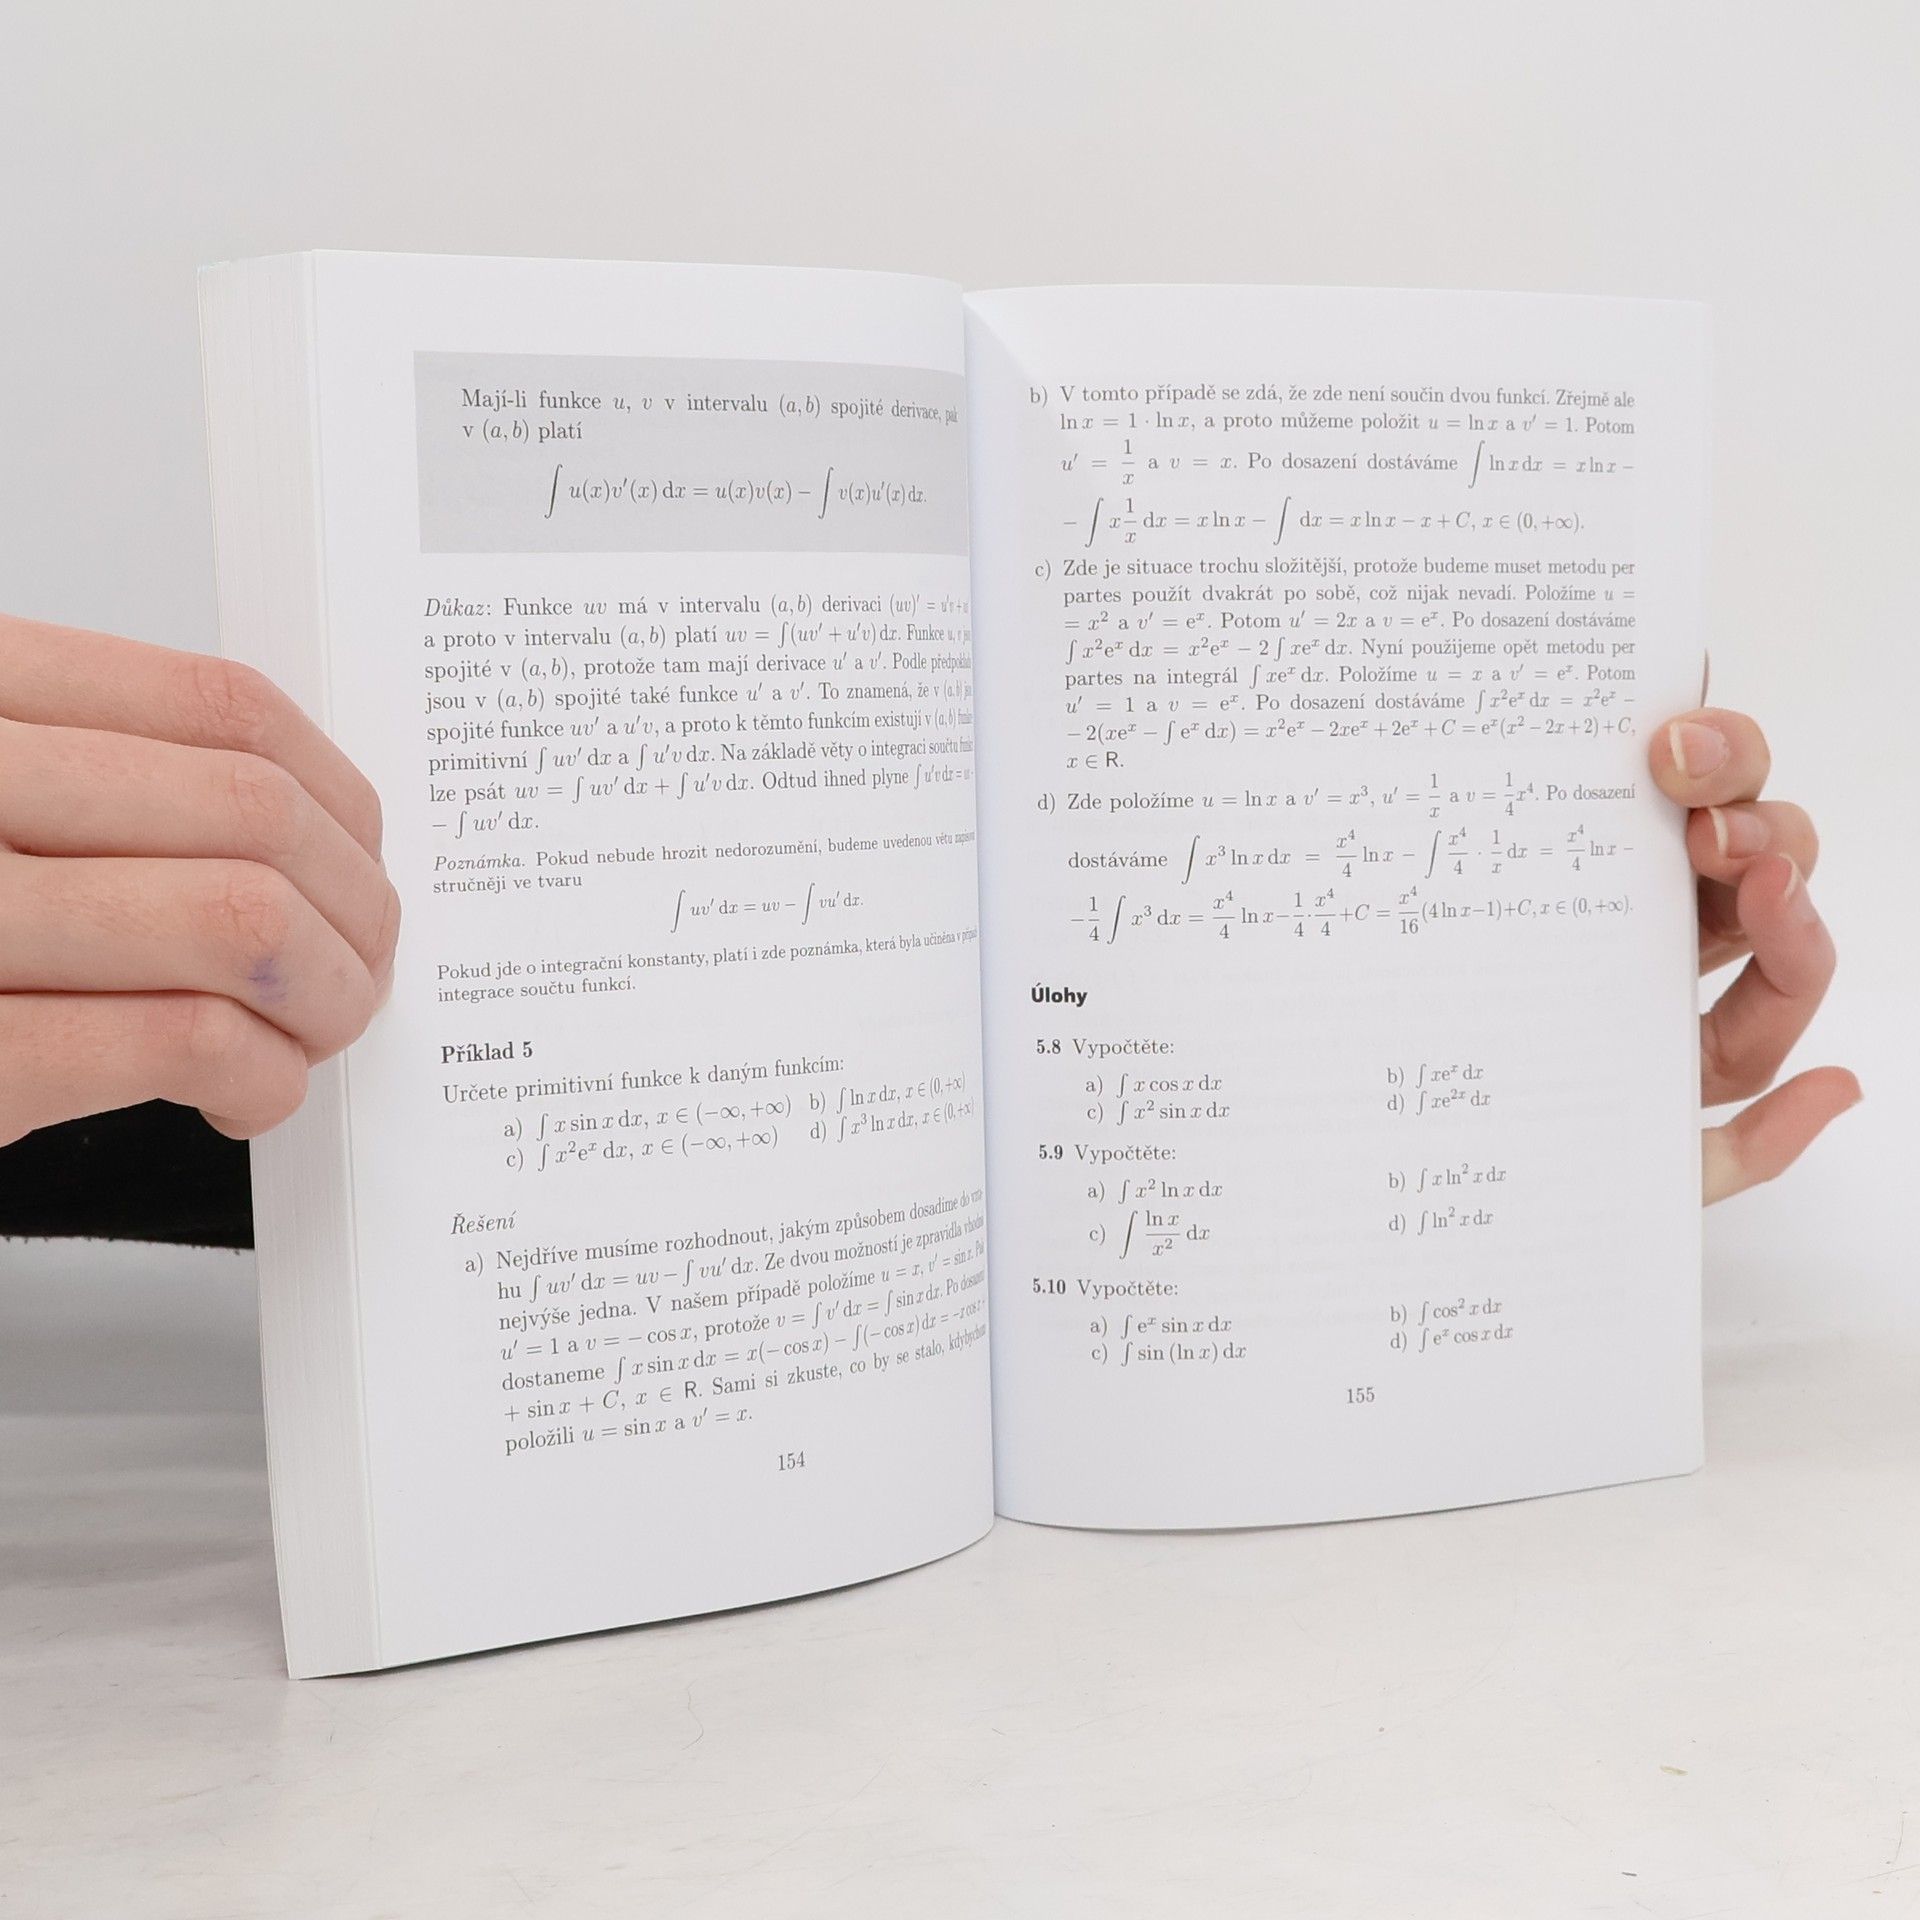 Mají-li funkce u, v v intervalu (a, b) spojité derivace, pak
v (a, b) platí
∫ u(x)v′(x) dx = u(x)v(x) − ∫ v(x)u′(x) dx.
Důkaz: Funkce uv má v intervalu (a, b) derivaci (uv)′ = u′v +
a proto v intervalu (a, b) platí uv = ∫(uv′ + u′v) dx. Funkce u, v
spojité v (a, b), protože tam mají derivace u′ a v′. Podle
jsou v (a, b) spojité také funkce u′ a v′. To znamená, že v (a, b)
spojité funkce uv′ a u′v, a proto k těmto funkcím existují v (a, b)
primitivní ∫ uv′ dx a ∫ u′v dx. Na základě věty o integraci součtu
lze psát uv = ∫ uv′ dx + ∫ u′v dx. Odtud ihned plyne ∫ u′v dx =
− ∫ uv′ dx.
Poznámka. Pokud nebude hrozit nedorozumění, budeme uvedenou větu
stručněji ve tvaru
∫ uv′ dx = uv − ∫ vu′ dx.
Pokud jde o integrační konstanty, platí i zde poznámka, která byla učiněna v
integrace součtu funkcí.
Příklad 5
Určete primitivní funkce k daným funkcím:
a) ∫ x sin x dx, x ∈ (−∞, +∞) b) ∫ ln x dx, x ∈ (0, +∞)
c) ∫ x²eˣ dx, x ∈ (−∞, +∞) d) ∫ x³ ln x dx, x ∈ (0, +∞)
Řešení
a) Nejdříve musíme rozhodnout, jakým způsobem dosadíme do
hu ∫ uv′ dx = uv − ∫ vu′ dx. Ze dvou možností je zpravidla
nejvýše jedna. V našem případě položíme u = x, v′ = sin x.
u′ = 1 a v = − cos x, protože v = ∫ v′ dx = ∫ sin x dx. Po
dostaneme ∫ x sin x dx = x(− cos x) − ∫(− cos x) dx = −x cos x
+ sin x + C, x ∈ R. Sami si zkuste, co by se stalo, kdybychom
položili u = sin x a v′ = x.
154
b) V tomto případě se zdá, že zde není součin dvou funkcí. Zřejmě ale
ln x = 1 · ln x, a proto můžeme položit u = ln x a v′ = 1. Potom
u′ = 1/x a v = x. Po dosazení dostáváme ∫ ln x dx = x ln x −
− ∫ x 1/x dx = x ln x − ∫ dx = x ln x − x + C, x ∈ (0, +∞).
c) Zde je situace trochu složitější, protože budeme muset metodu per
partes použít dvakrát po sobě, což nijak nevadí. Položíme u =
= x² a v′ = eˣ. Potom u′ = 2x a v = eˣ. Po dosazení dostáváme
∫ x²eˣ dx = x²eˣ − 2 ∫ xeˣ dx. Nyní použijeme opět metodu per
partes na integrál ∫ xeˣ dx. Položíme u = x a v′ = eˣ. Potom
u′ = 1 a v = eˣ. Po dosazení dostáváme ∫ x²eˣ dx = x²eˣ −
− 2(xeˣ − ∫ eˣ dx) = x²eˣ − 2xeˣ + 2eˣ + C = eˣ(x² − 2x + 2) + C,
x ∈ R.
d) Zde položíme u = ln x a v′ = x³, u′ = 1/x a v = 1/4 x⁴. Po dosazení
dostáváme ∫ x³ ln x dx = x⁴/4 ln x − ∫ x⁴/4 · 1/x dx = x⁴/4 ln x −
− 1/4 ∫ x³ dx = x⁴/4 ln x − 1/4 · x⁴/4 + C = x⁴/16 (4 ln x − 1) + C, x ∈ (0, +∞).
Úlohy
5.8 Vypočtěte:
a) ∫ x cos x dx b) ∫ xeˣ dx
c) ∫ x² sin x dx d) ∫ xe²ˣ dx
5.9 Vypočtěte:
a) ∫ x² ln x dx b) ∫ x ln² x dx
c) ∫ ln x/x² dx d) ∫ ln² x dx
5.10 Vypočtěte:
a) ∫ eˣ sin x dx b) ∫ cos² x dx
c) ∫ sin (ln x) dx d) ∫ eˣ cos x dx
155